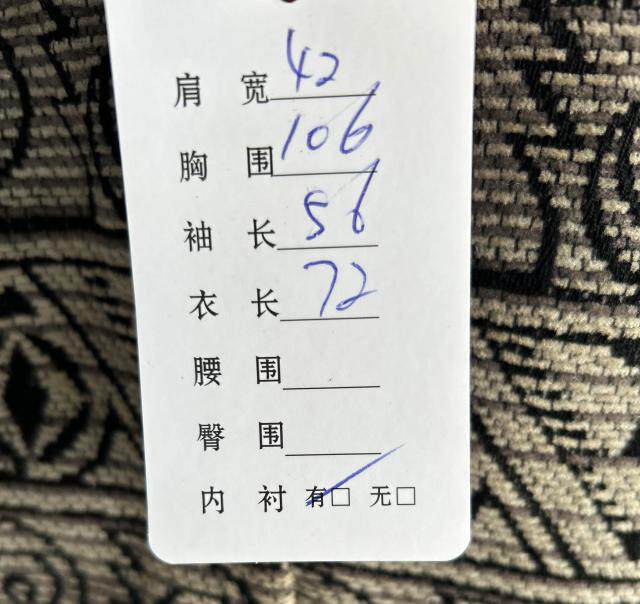 肩 宽 42
胸 围 106
袖 长 56
衣 长 72
腰 围
臀 围
内 衬 有□ 无□